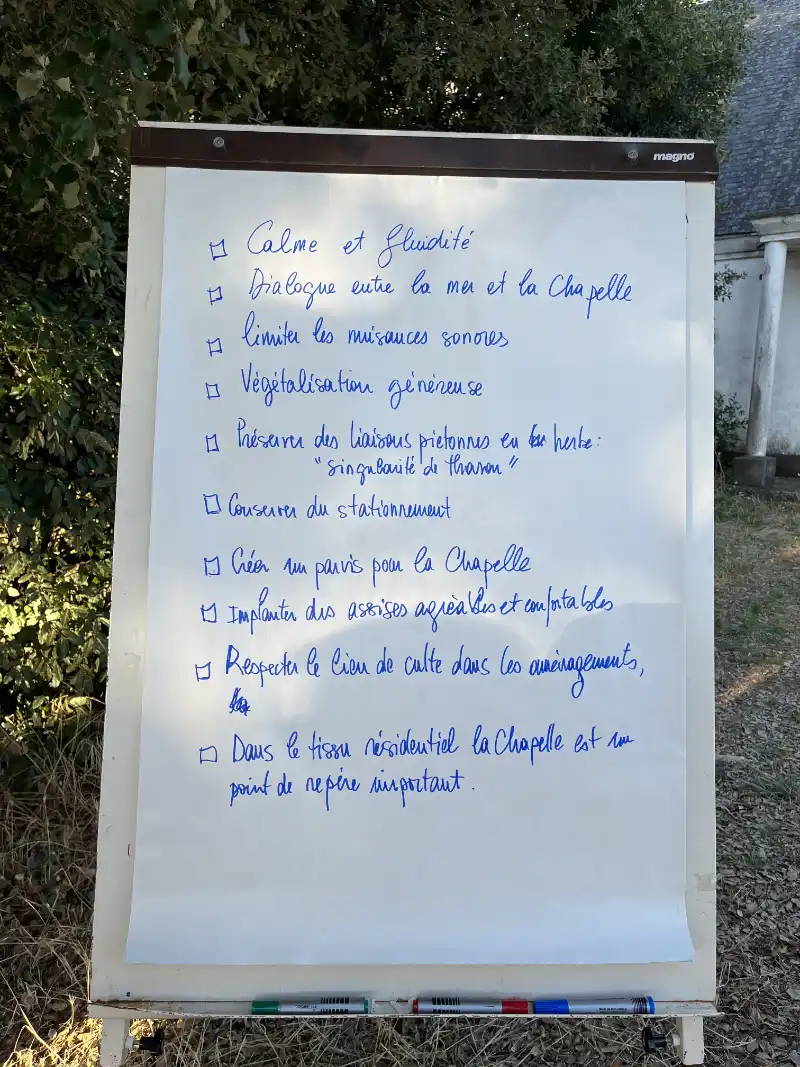 magno
Calme et fluidité
Dialogue entre la mer et la Chapelle
limiter les nuisances sonores
Végétalisation généreuse
Préserver des liaisons piétonnes en herbe :
"singularité de tharon"
Conserver du stationnement
Créer un parvis pour la Chapelle
Implanter des assises agréables et confortables
Respecter le lieu de culte dans les aménagements,
Dans le tissu résidentiel la Chapelle est un
point de repère important.